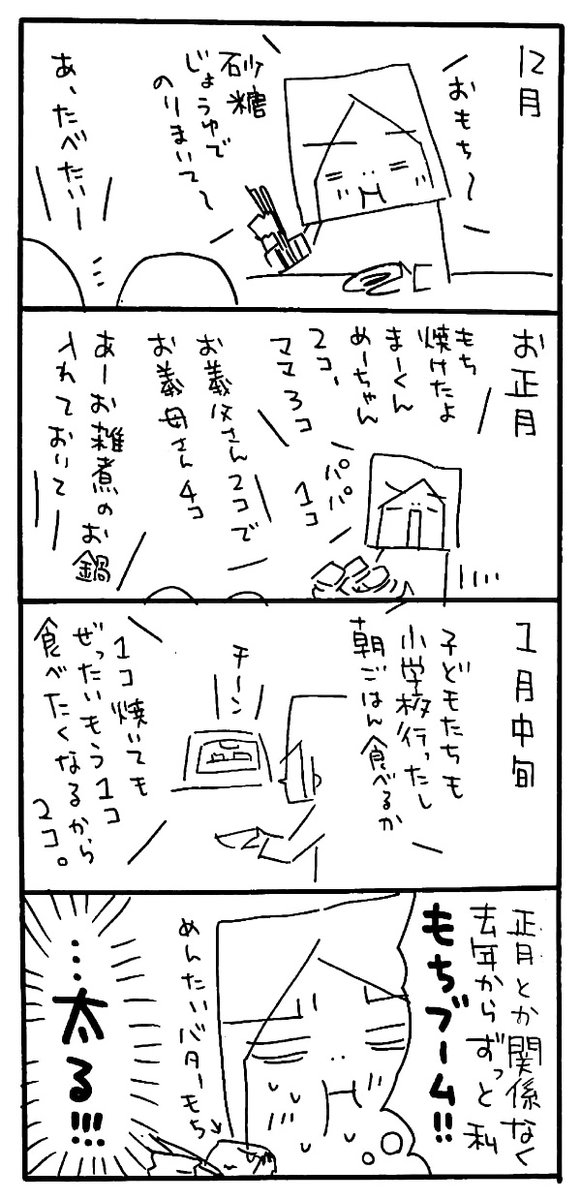 12月
おもち〜
砂糖
じょうゆで
のりまいて〜
あ、たべたいー
お正月
もち
焼けたよ
まーくん
めーちゃん
2コ、
ママ3コ
パパ
1コ
お義父さん2コで
お義母さん4コ
あーお雑煮のお鍋
入れておいて
1月中旬
子どもたちも
小学校行ったし
朝ごはん食べるか
チーン
1コ焼いても
ぜったいもう1コ
食べたくなるから
2コ。
正月とか関係なく
去年からずっと私
もちブーム!!
めんたいバターもち
…太る!!!